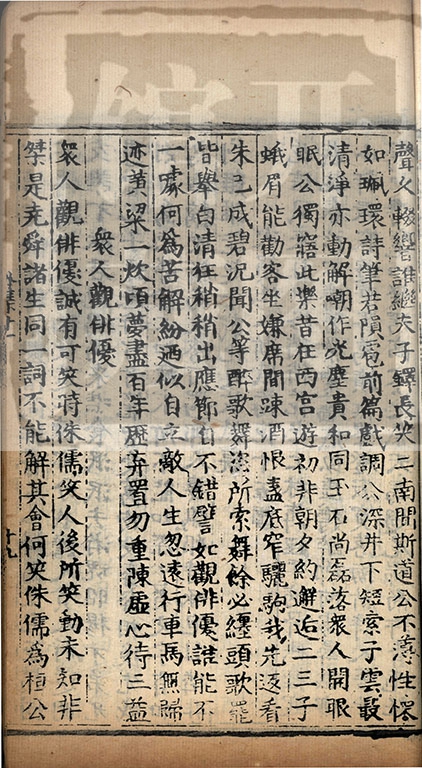 聲久輟響誰繼夫子鐸長笑二南間斯道公不薄性
如珮環詩筆若隕雹前篇戲調公深井下短索子雲最
清淨亦動解嘲作光塵貴和同玉石尚磊落衆人開眼
眠公獨寤此樂昔在西宮遊初非朝夕約邂逅二三子
蛾眉能勸客坐嫌席間踈酒恨盞底窄驪駒我先逐看
朱已成碧況聞公等醉歌舞恣所索舞餘必纏頭歌罷
皆舉白清狂稍稍出應節自不錯譬如觀俳優誰能不
一噱何為苦解紛迺似自立敵人生忽遠行車馬無歸
迹黃粱一炊頃夢盡百年歷弃置勿重陳虛心待三益
衆人觀俳優
衆人觀俳優誠有可笑時侏儒笑人後所笑動未知非
桀是堯舜諸生同一詞不能解其會何笑侏儒為桓公